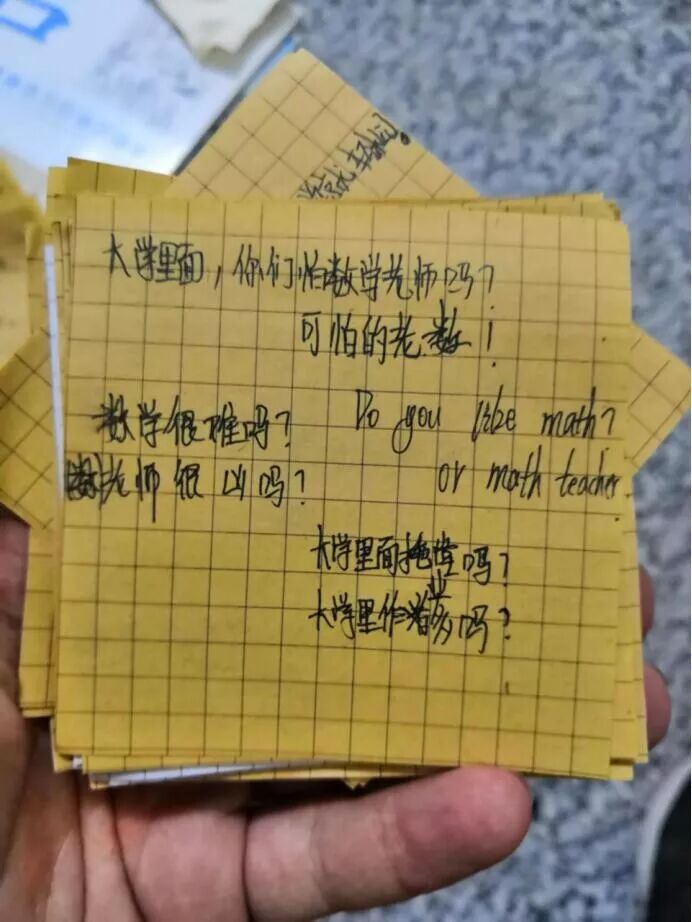 大学里面，你们怕数学老师吗？
可怕的老数！
数学很难吗？
老师很凶吗？
Do you like math?
or math teacher.
大学里面拖堂吗？
大学里作业多吗？